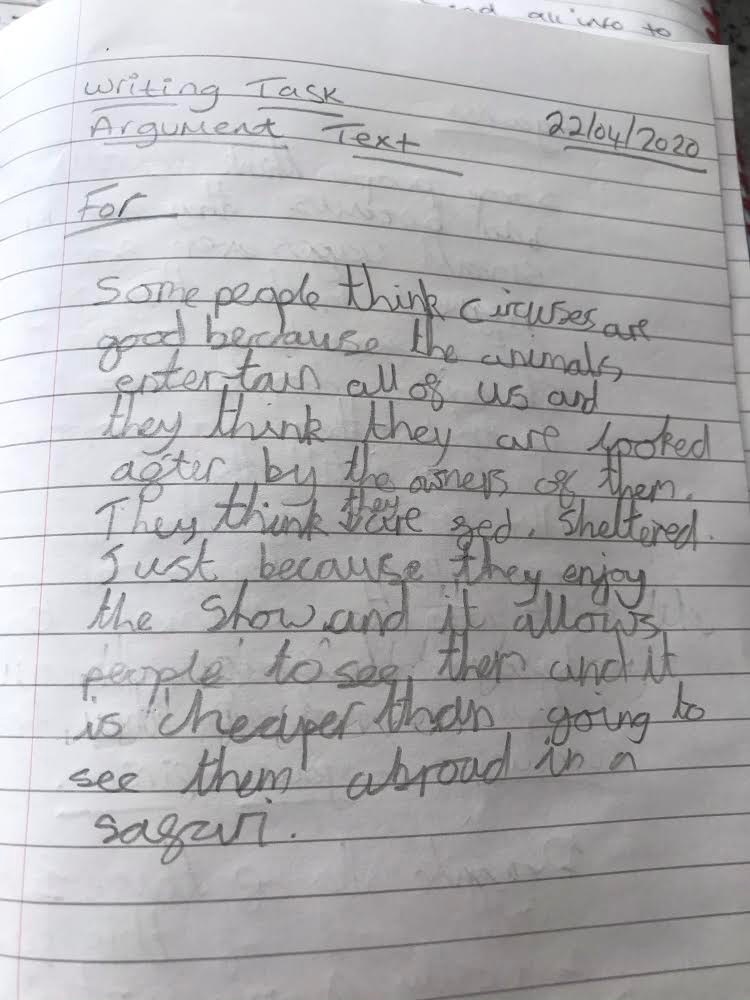 and all info to
Writing Task
Argument Text 22/04/2020
For
Some people think circuses are
good because the animals
entertain all of us and
they think they are looked
after by the owners of them.
They think they are fed, sheltered.
Just because they enjoy
the show and it allows
people to see them and it
is cheaper than going to
see them abroad in a
safari.